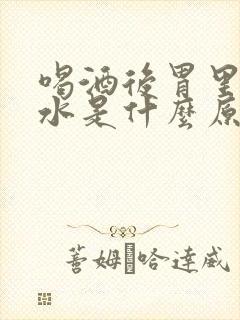 喝酒後胃里
水是什麼原
蓍姆哈達威